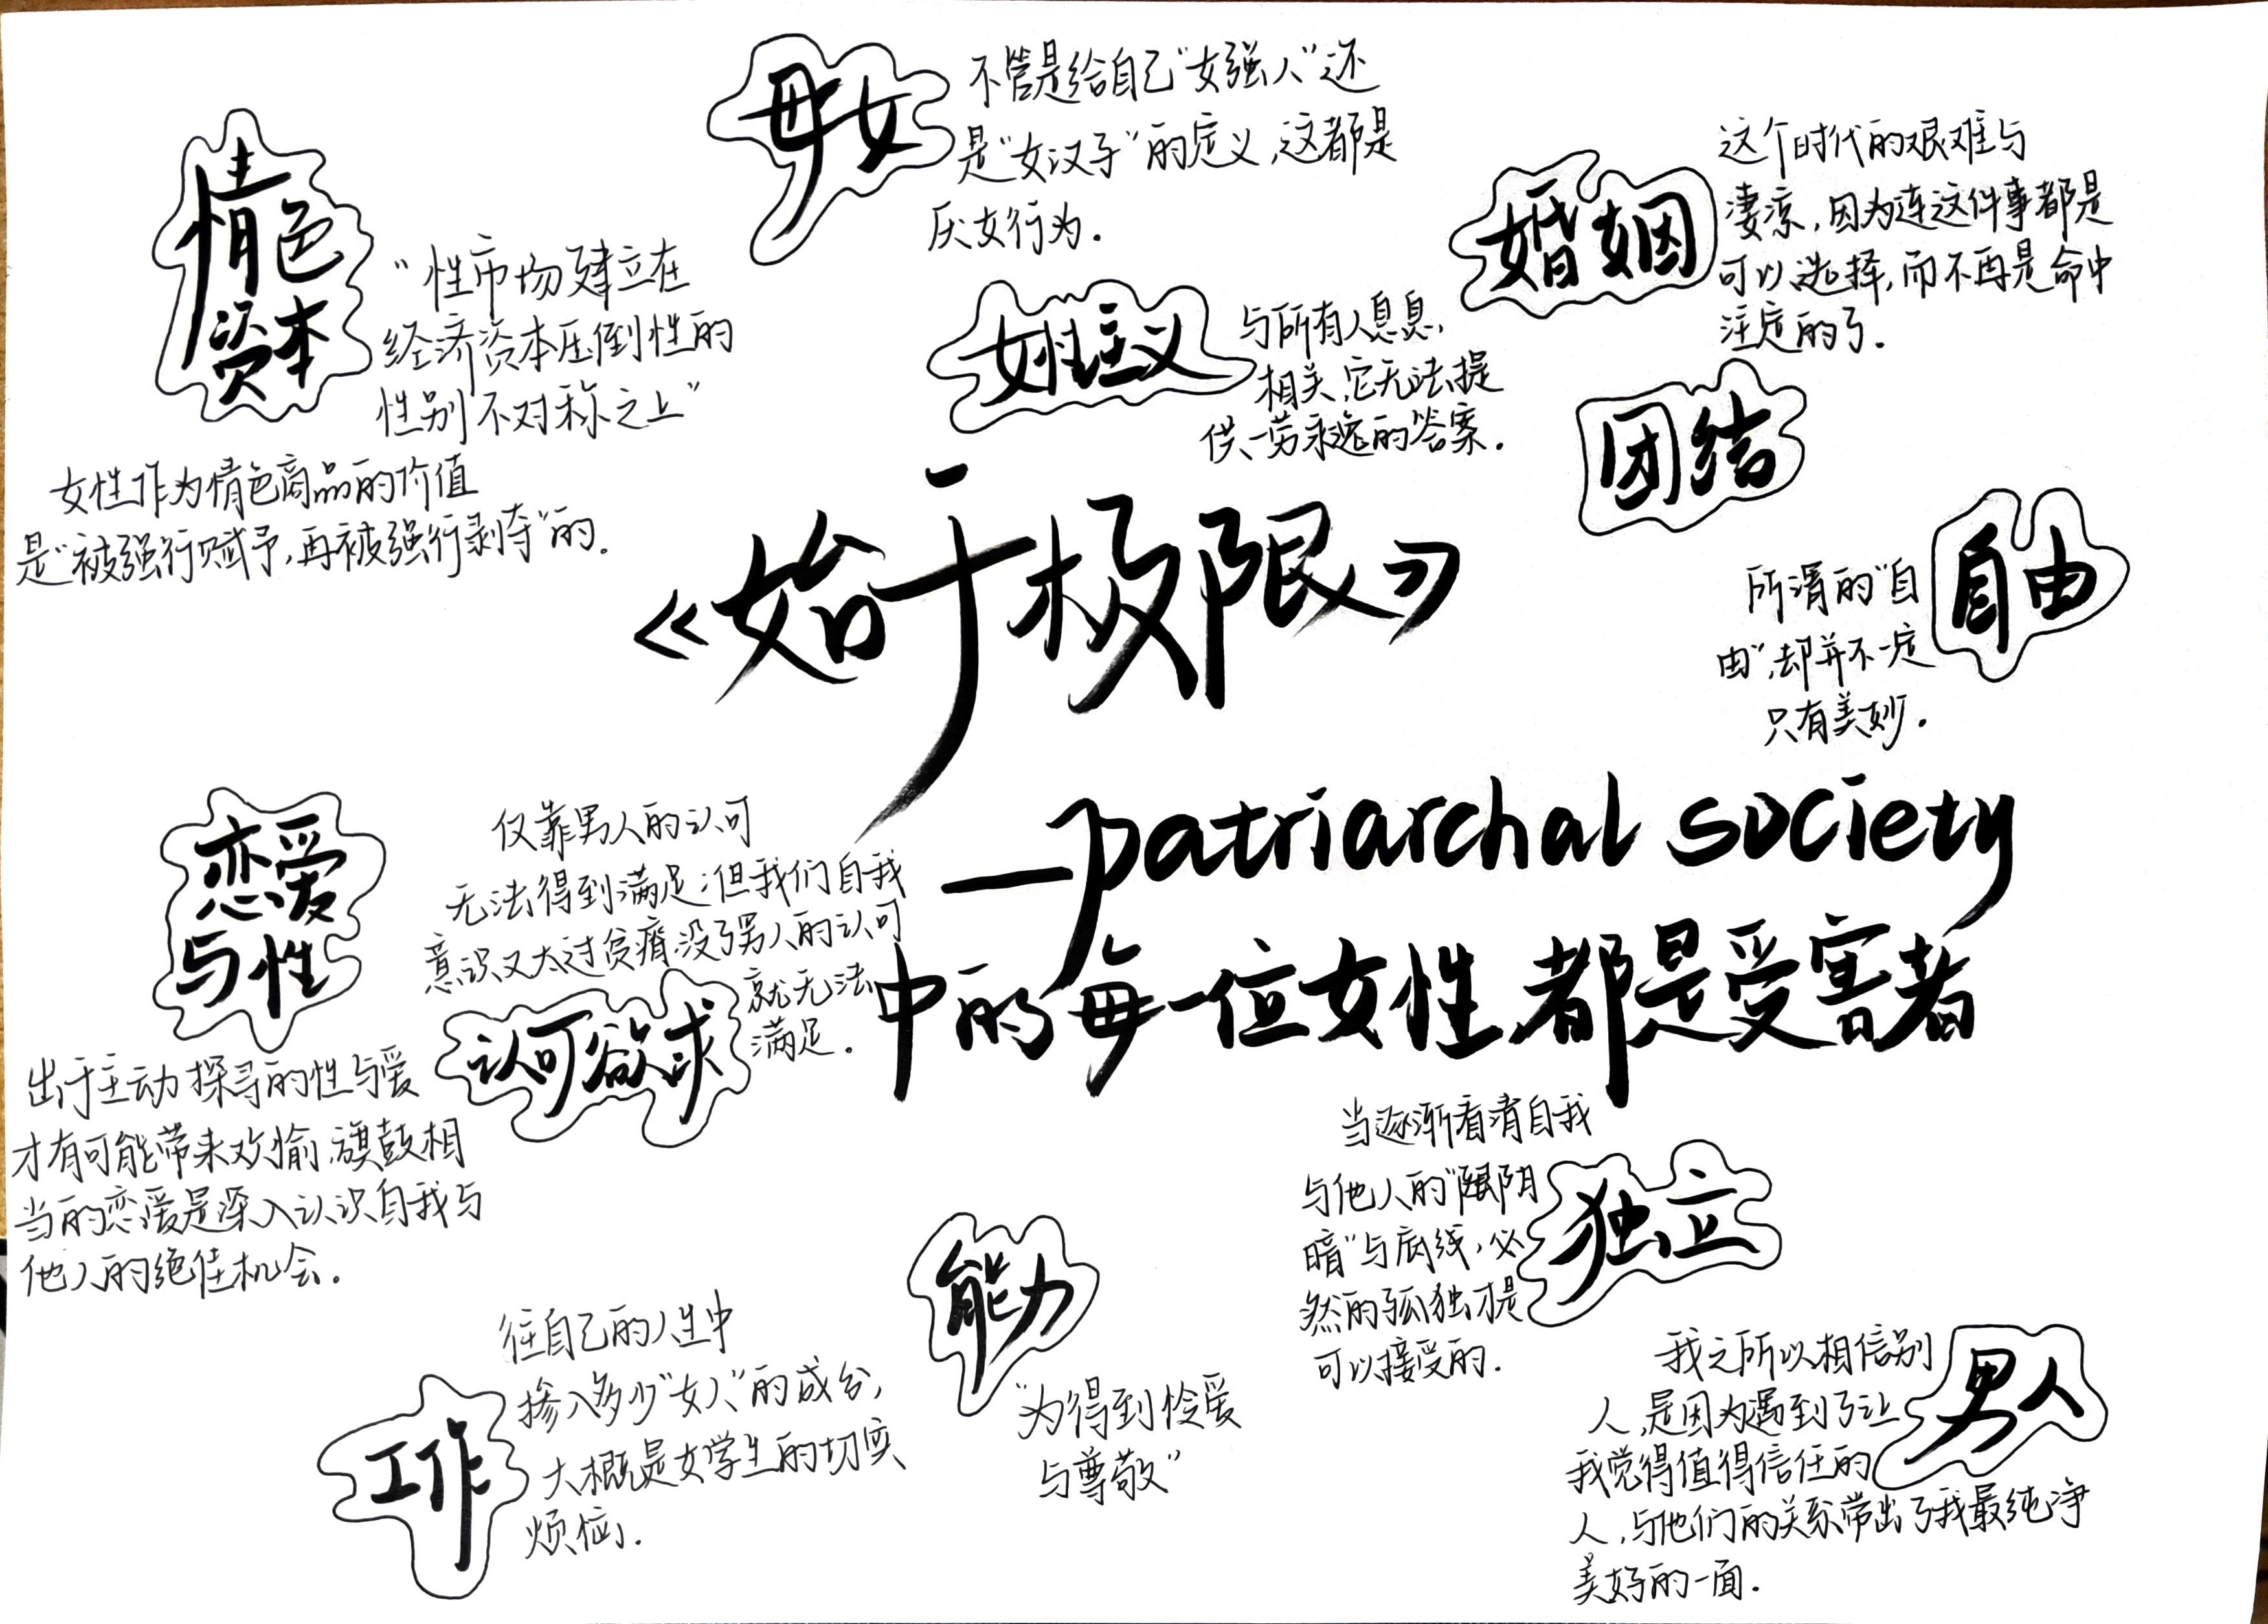 《始于极限》
—patriarchal society
中的每一位女性都是受害者
情色
资本
"性市场建立在
经济资本压倒性的
性别不对称之上"
女性作为情色商品的价值
是"被强行赋予,再被强行剥夺"的.
母女
不管是给自己"女强人"还
是"女汉子"的定义,这都是
厌女行为.
女性主义
与所有人息息,
相关,它无法提
供一劳永逸的答案.
婚姻
这个时代的艰难与
凄凉,因为连这件事都是
可以选择,而不再是命中
注定的了.
团结
自由
所谓的"自
由",却并不一定
只有美妙.
恋爱
与性
出于主动探寻的性与爱
才有可能带来欢愉,旗鼓相
当的恋爱是深入认识自我与
他人的绝佳机会.
认可欲求
仅靠男人的认可
无法得到满足;但我们自我
意识又太过贫瘠,没了男人的认可
就无法
满足.
工作
往自己的人生中
掺入多少"女人"的成分,
大概是女学生的切实
烦恼.
能力
"为得到怜爱
与尊敬"
独立
当逐渐看清自我
与他人的"阴
暗"与底线,必
然的孤独才是
可以接受的.
男人
我之所以相信别
人,是因为遇到了让
我觉得值得信任的
人,与他们的关系带出了我最纯净
美好的一面.